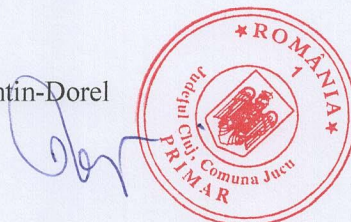 ntin-Dorel
★ROMÂNIA★
1
Județul Cluj, Comuna Jucu
PRIMAR